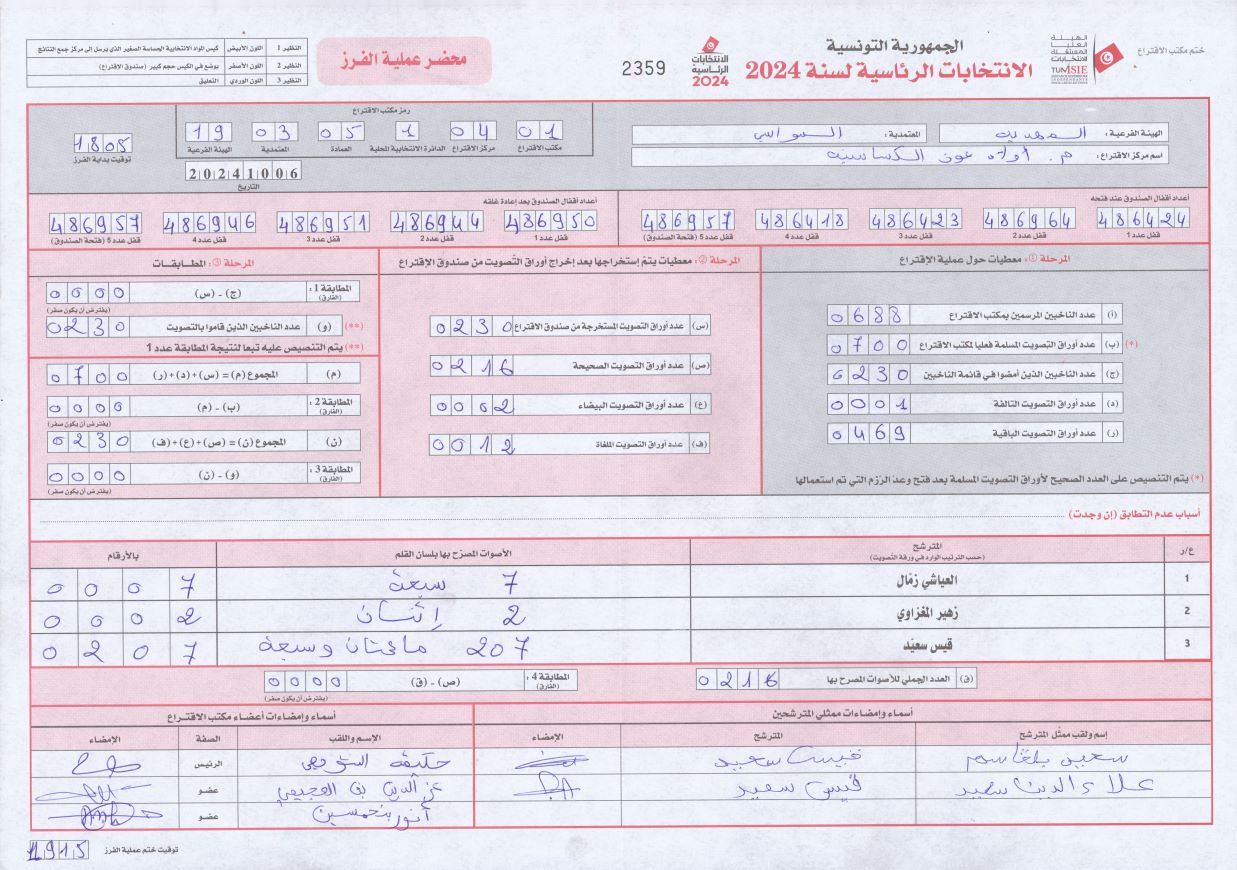 ختم مكتب الاقتراع
الهيئة العليا المستقلة للانتخابات
TUNISIE
الجمهورية التونسية
الانتخابات الرئاسية لسنة 2024
الانتخابات الرئاسية 2024
2359
محضر عملية الفرز
النظير 1 اللون الأبيض كيس المواد الانتخابية الحساسة الصغير الذي يرسل إلى مركز جمع النتائج
النظير 2 اللون الأصفر يوضع في الكيس حجم كبير (صندوق الاقتراع)
النظير 3 اللون الوردي التعليق
الهيئة الفرعية : المهدية
المعتمدية : السواسي
اسم مركز الاقتراع : م. أولاد عون الكساسبة
رمز مكتب الاقتراع
01 04 1 05 03 19
مكتب الاقتراع مركز الاقتراع الدائرة الانتخابية المحلية العمادة المعتمدية الهيئة الفرعية
20241006
التاريخ
1805
توقيت بداية الفرز
أعداد أقفال الصندوق عند فتحه
486424 486964 486423 486418 486957
قفل عدد 1 قفل عدد 2 قفل عدد 3 قفل عدد 4 قفل عدد 5 (فتحة الصندوق)
أعداد أقفال الصندوق بعد إعادة غلقه
486950 486944 486951 486946 486957
قفل عدد 1 قفل عدد 2 قفل عدد 3 قفل عدد 4 قفل عدد 5 (فتحة الصندوق)
المرحلة ①: معطيات حول عملية الإقتراع
(أ) عدد الناخبين المرسمين بمكتب الاقتراع 0688
(*) (ب) عدد أوراق التصويت المسلمة فعليا لمكتب الاقتراع 0700
(ج) عدد الناخبين الذين أمضوا في قائمة الناخبين 0230
(د) عدد أوراق التصويت التالفة 0001
(ر) عدد أوراق التصويت الباقية 0469
(*) يتم التنصيص على العدد الصحيح لأوراق التصويت المسلمة بعد فتح وعد الرزم التي تم استعمالها
المرحلة ②: معطيات يتم إستخراجها بعد إخراج أوراق التصويت من صندوق الإقتراع
(س) عدد أوراق التصويت المستخرجة من صندوق الاقتراع 0230
(ص) عدد أوراق التصويت الصحيحة 0216
(ع) عدد أوراق التصويت البيضاء 0002
(ف) عدد أوراق التصويت الملغاة 0012
المرحلة ③: المطابقات
المطابقة 1 : (الفارق) (ج) - (س) 0000
(يفترض أن يكون صفر)
(**) (و) عدد الناخبين الذين قاموا بالتصويت 0230
(**) يتم التنصيص عليه تبعا لنتيجة المطابقة عدد 1
(م) المجموع (م) = (س)+(د)+(ر) 0700
المطابقة 2 : (الفارق) (ب) - (م) 0000
(يفترض أن يكون صفر)
(ن) المجموع (ن) = (ص)+(ع)+(ف) 0230
المطابقة 3 : (الفارق) (و) - (ن) 0000
(يفترض أن يكون صفر)
أسباب عدم التطابق (إن وجدت)
ع/ر المترشح الأصوات المصرّح بها بلسان القلم بالأرقام
(حسب الترتيب الوارد في ورقة التصويت)
1 العياشي زمّال 7 سبعة 0007
2 زهير المغزاوي 2 إثنان 0002
3 قيس سعيّد 207 مائتان وسبعة 0207
(ق) العدد الجملي للأصوات المصرح بها 0216
المطابقة 4 : (الفارق) (ص) - (ق) 0000
(يفترض أن يكون صفر)
أسماء وإمضاءات ممثلي المترشحين
إسم ولقب ممثل المترشح المترشح الإمضاء
سعيد بلقاسم قيس سعيد
علاء الدين سعيد قيس سعيد
أسماء وإمضاءات أعضاء مكتب الاقتراع
الإسم واللقب الصفة الإمضاء
حكيمة الرئيس
عز الدين بن العجيمي عضو
أنور بنحسين عضو
توقيت ختم عملية الفرز 1915